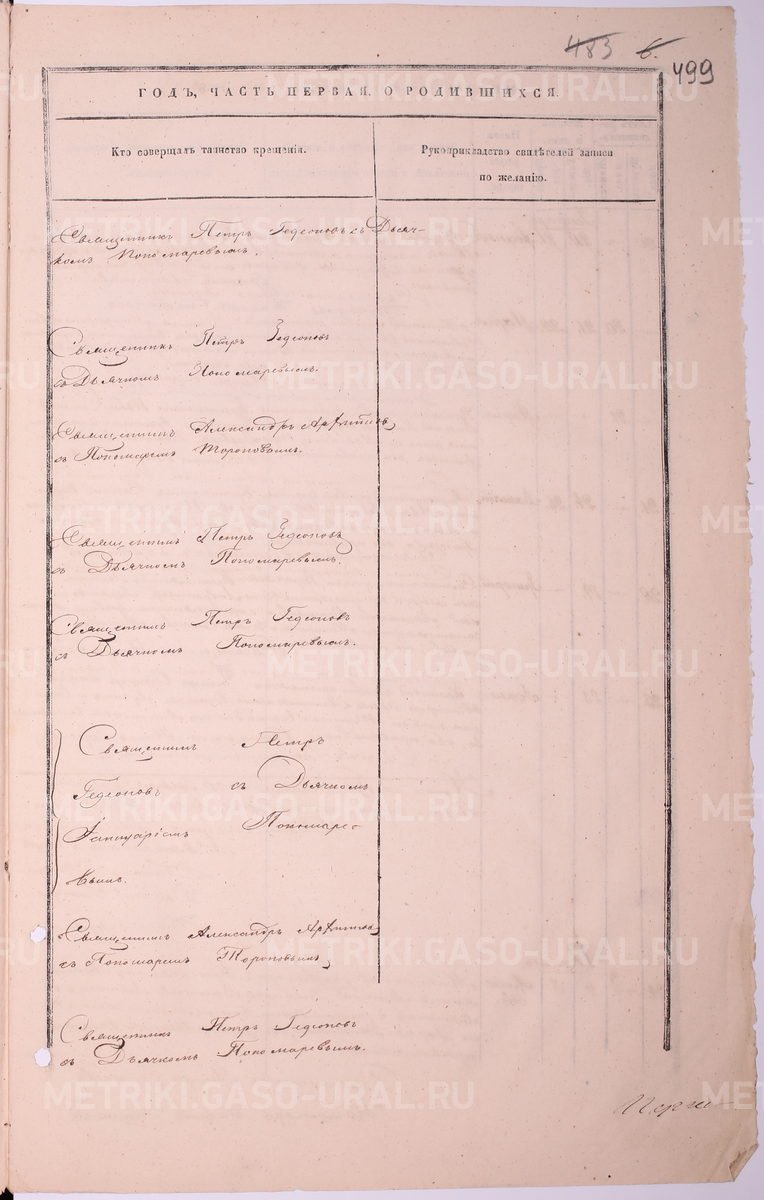 483 6.
499
ГОДЪ, ЧАСТЬ ПЕРВАЯ, О РОДИВШИХСЯ.
Кто совершалъ таинство крещенія.
Рукоприкладство свидѣтелей записи
по желанію.
Священникъ Петръ Гедеоновъ съ Дьяч-
комъ Пономаревымъ.
Священникъ Петръ Гедеоновъ
съ Дьячкомъ Пономаревымъ.
Священникъ Александръ
съ Пономаремъ Тороповымъ.
Священникъ Петръ Гедеоновъ
съ Дьячкомъ Пономаревымъ.
Священникъ Петръ Гедеоновъ
съ Дьячкомъ Пономаревымъ.
Священникъ Петръ
Гедеоновъ съ Дьячкомъ
Іануаріемъ Пономаре-
вымъ.
Священникъ Александръ
съ Пономаремъ Тороповымъ
Священникъ Петръ Гедеоновъ
съ Дьячкомъ Пономаревымъ.
METRIKI.GASO-URAL.RU